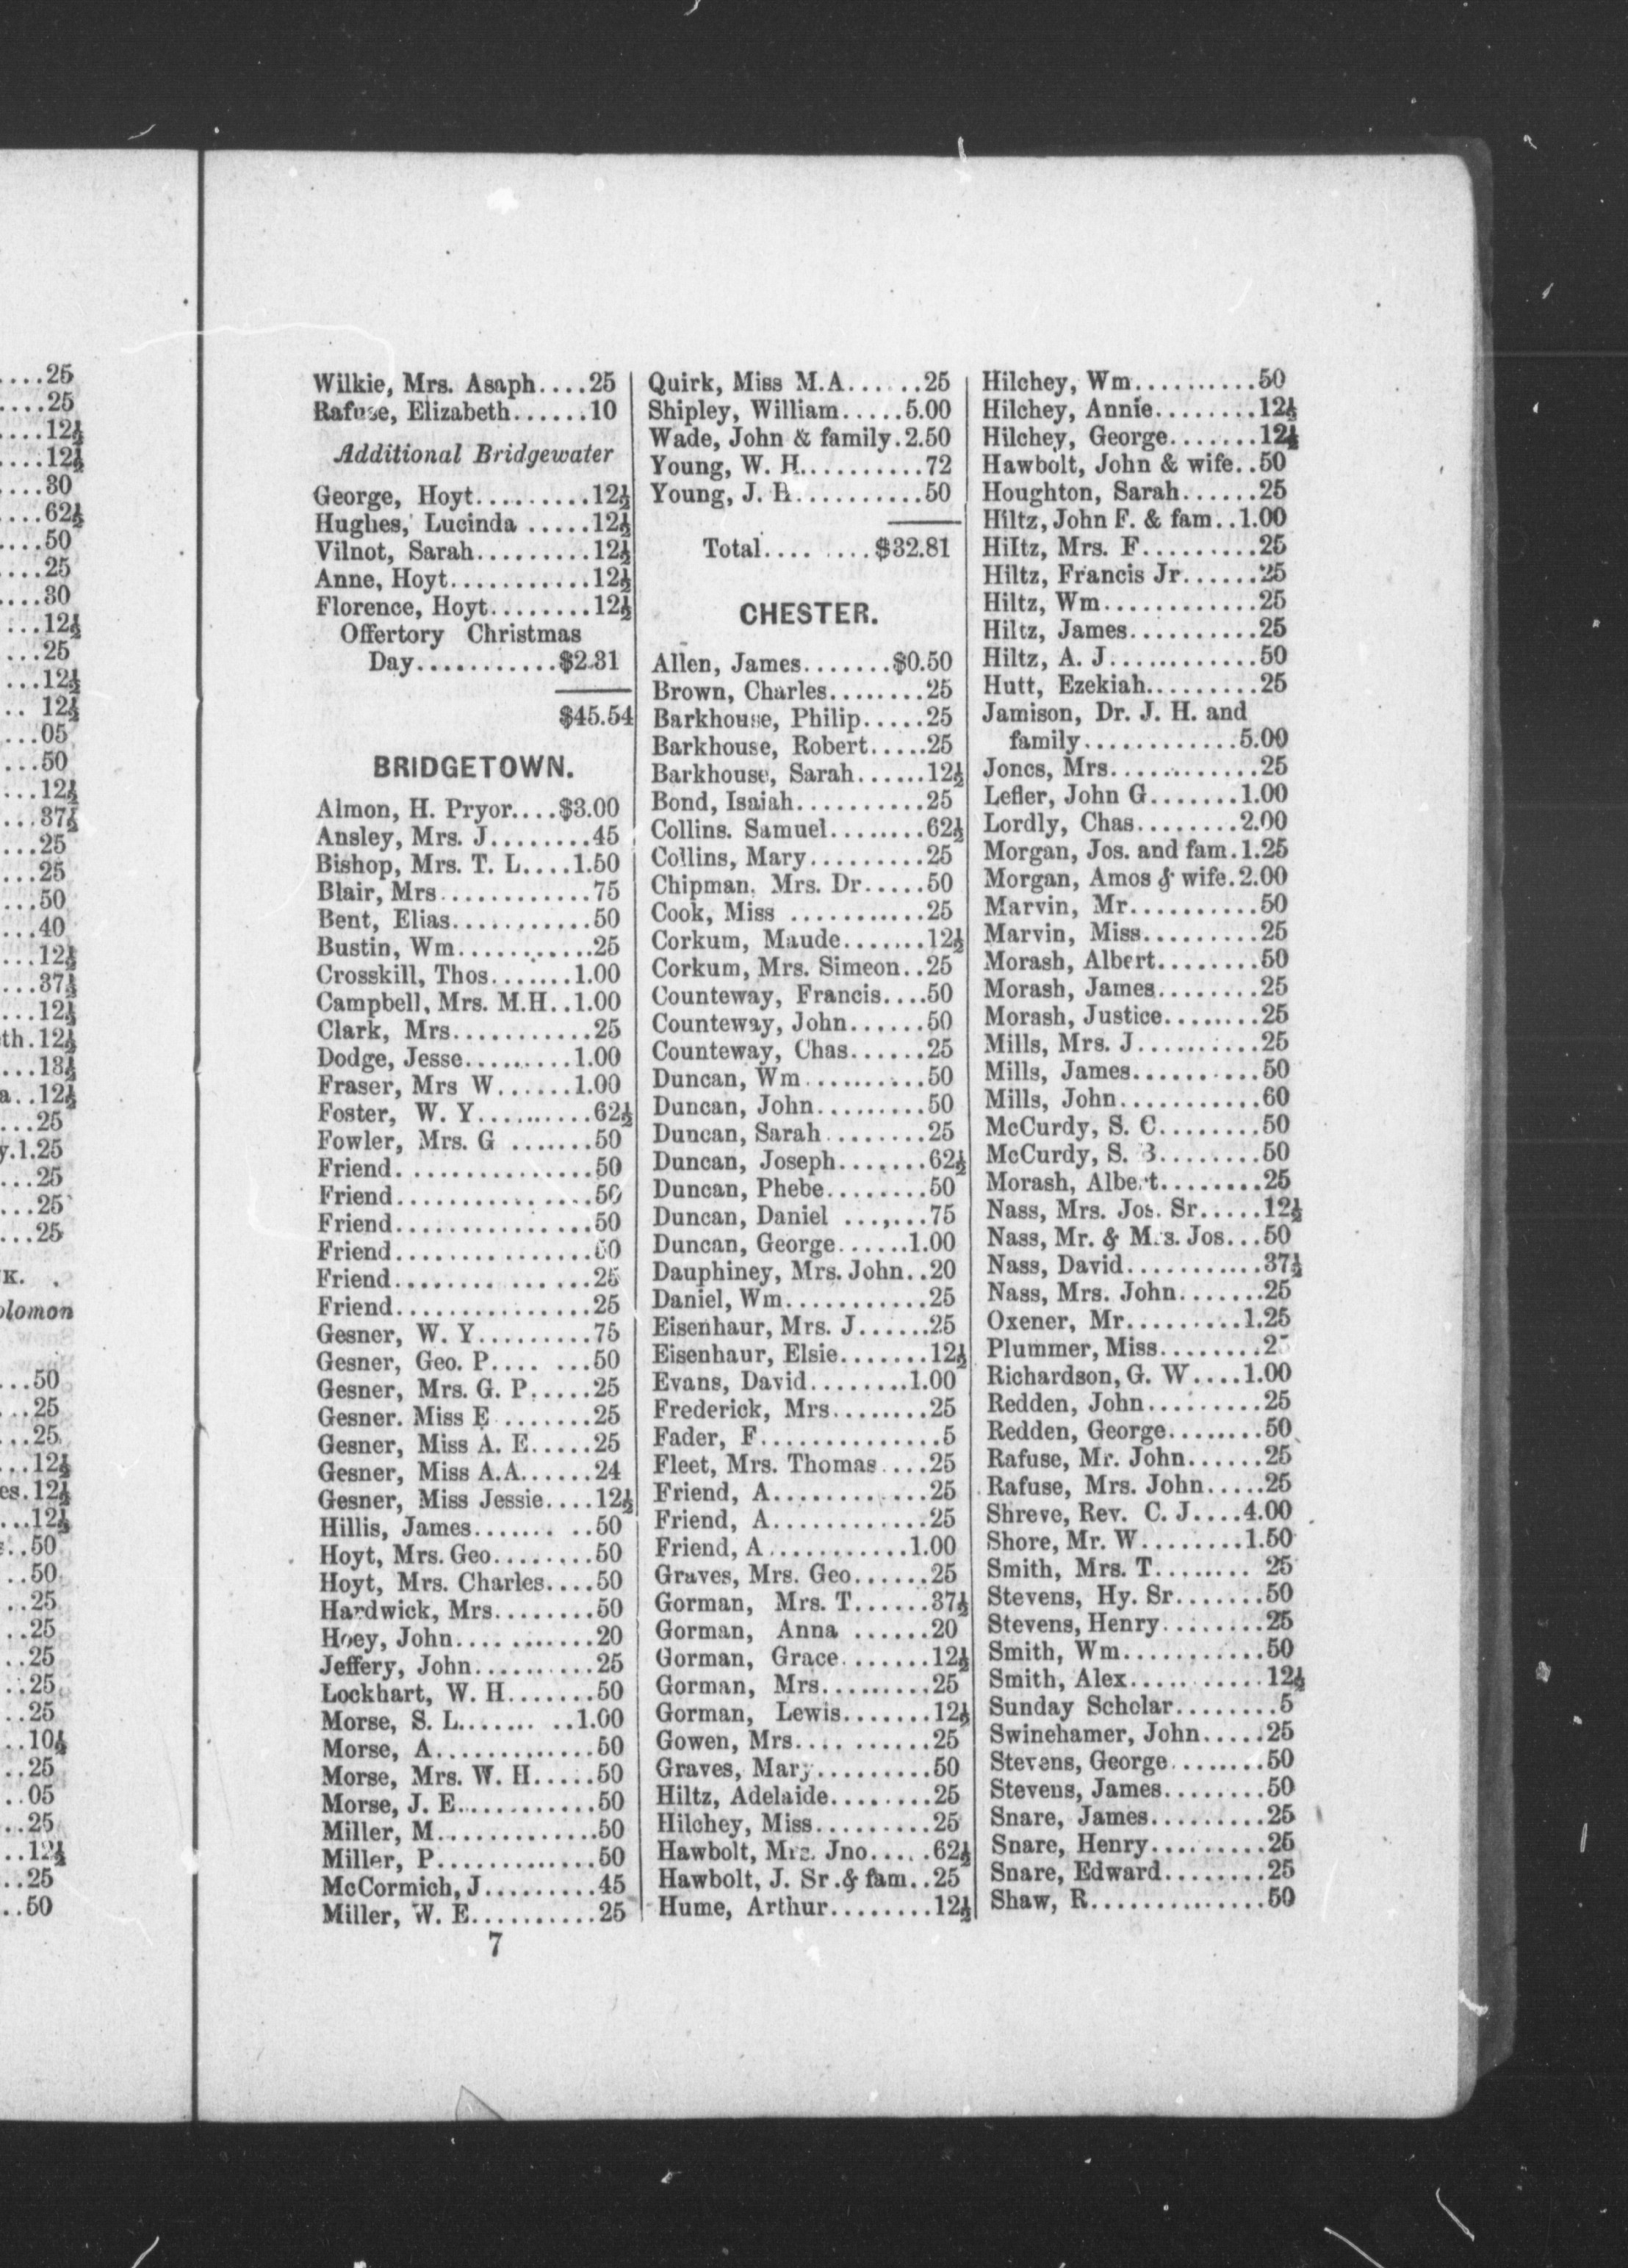 ....25
....25
....12½
....12½
....30
....62½
....50
....25
....30
...12½
...25
...12½
.. 12½
...05
...50
...12½
...37½
...25
...25
...50
...40
...12½
...37½
...12½
th.12½
...18½
a..12½
...25
y.1.25
...25
...25
...25
K.
olomon
...50
...25
...25
...12½
es.12½
...12½
..50
..50
..25
..25
..25
..25
..25
..10½
..25
..05
..25
..12½
..25
..50
Wilkie, Mrs. Asaph....25
Rafuse, Elizabeth......10
Additional Bridgewater
George, Hoyt.........12½
Hughes, Lucinda .....12½
Vilnot, Sarah.........12½
Anne, Hoyt...........12½
Florence, Hoyt........12½
Offertory Christmas
Day...........$2.31
$45.54
BRIDGETOWN.
Almon, H. Pryor....$3.00
Ansley, Mrs. J........45
Bishop, Mrs. T. L....1.50
Blair, Mrs............75
Bent, Elias...........50
Bustin, Wm...........25
Crosskill, Thos.......1.00
Campbell, Mrs. M.H..1.00
Clark, Mrs...........25
Dodge, Jesse.........1.00
Fraser, Mrs W......1.00
Foster, W. Y.........62½
Fowler, Mrs. G .......50
Friend...............50
Friend...............50
Friend...............50
Friend...............50
Friend...............25
Friend...............25
Gesner, W. Y.........75
Gesner, Geo. P.... ...50
Gesner, Mrs. G. P.....25
Gesner. Miss E .......25
Gesner, Miss A. E.....25
Gesner, Miss A.A......24
Gesner, Miss Jessie....12½
Hillis, James....... ..50
Hoyt, Mrs. Geo........50
Hoyt, Mrs. Charles....50
Hardwick, Mrs........50
Hoey, John...........20
Jeffery, John..........25
Lockhart, W. H.......50
Morse, S. L....... ..1.00
Morse, A.............50
Morse, Mrs. W. H.....50
Morse, J. E...........50
Miller, M.............50
Miller, P.............50
McCormich, J.........45
Miller, W. E..........25
7
Quirk, Miss M.A......25
Shipley, William.....5.00
Wade, John & family.2.50
Young, W. H..........72
Young, J. R...........50
Total.... ....$32.81
CHESTER.
Allen, James.......$0.50
Brown, Charles........25
Barkhouse, Philip.....25
Barkhouse, Robert.....25
Barkhouse, Sarah......12½
Bond, Isaiah..........25
Collins. Samuel........62½
Collins, Mary.........25
Chipman. Mrs. Dr.....50
Cook, Miss ...........25
Corkum, Maude.......12½
Corkum, Mrs. Simeon..25
Counteway, Francis....50
Counteway, John......50
Counteway, Chas......25
Duncan, Wm..........50
Duncan, John.........50
Duncan, Sarah........25
Duncan, Joseph.......62½
Duncan, Phebe........50
Duncan, Daniel .......75
Duncan, George......1.00
Dauphiney, Mrs. John..20
Daniel, Wm...........25
Eisenhaur, Mrs. J......25
Eisenhaur, Elsie.......12½
Evans, David........1.00
Frederick, Mrs........25
Fader, F...............5
Fleet, Mrs. Thomas....25
Friend, A.............25
Friend, A.............25
Friend, A...........1.00
Graves, Mrs. Geo......25
Gorman, Mrs. T......37½
Gorman, Anna ......20
Gorman, Grace.......12½
Gorman, Mrs.........25
Gorman, Lewis.......12½
Gowen, Mrs..........25
Graves, Mary.........50
Hiltz, Adelaide........25
Hilchey, Miss.........25
Hawbolt, Mrs. Jno.....62½
Hawbolt, J. Sr.& fam..25
Hume, Arthur........12½
Hilchey, Wm..........50
Hilchey, Annie........12½
Hilchey, George.......12½
Hawbolt, John & wife..50
Houghton, Sarah......25
Hiltz, John F. & fam..1.00
Hiltz, Mrs. F..........25
Hiltz, Francis Jr......25
Hiltz, Wm............25
Hiltz, James..........25
Hiltz, A. J............50
Hutt, Ezekiah.........25
Jamison, Dr. J. H. and
family............5.00
Jones, Mrs............25
Lefler, John G.......1.00
Lordly, Chas........2.00
Morgan, Jos. and fam.1.25
Morgan, Amos & wife.2.00
Marvin, Mr..........50
Marvin, Miss.........25
Morash, Albert........50
Morash, James........25
Morash, Justice........25
Mills, Mrs. J..........25
Mills, James..........50
Mills, John...........60
McCurdy, S. C........50
McCurdy, S. B........50
Morash, Albert........25
Nass, Mrs. Jos. Sr.....12½
Nass, Mr. & Mrs. Jos...50
Nass, David...........37½
Nass, Mrs. John.......25
Oxener, Mr.........1.25
Plummer, Miss........
Richardson, G. W....1.00
Redden, John.........25
Redden, George........50
Rafuse, Mr. John......25
Rafuse, Mrs. John.....25
Shreve, Rev. C. J....4.00
Shore, Mr. W........1.50
Smith, Mrs. T........ 25
Stevens, Hy. Sr.......50
Stevens, Henry........25
Smith, Wm...........50
Smith, Alex...........12½
Sunday Scholar........5
Swinehamer, John.....25
Stevens, George.......50
Stevens, James........50
Snare, James.........25
Snare, Henry.........25
Snare, Edward........25
Shaw, R..............50